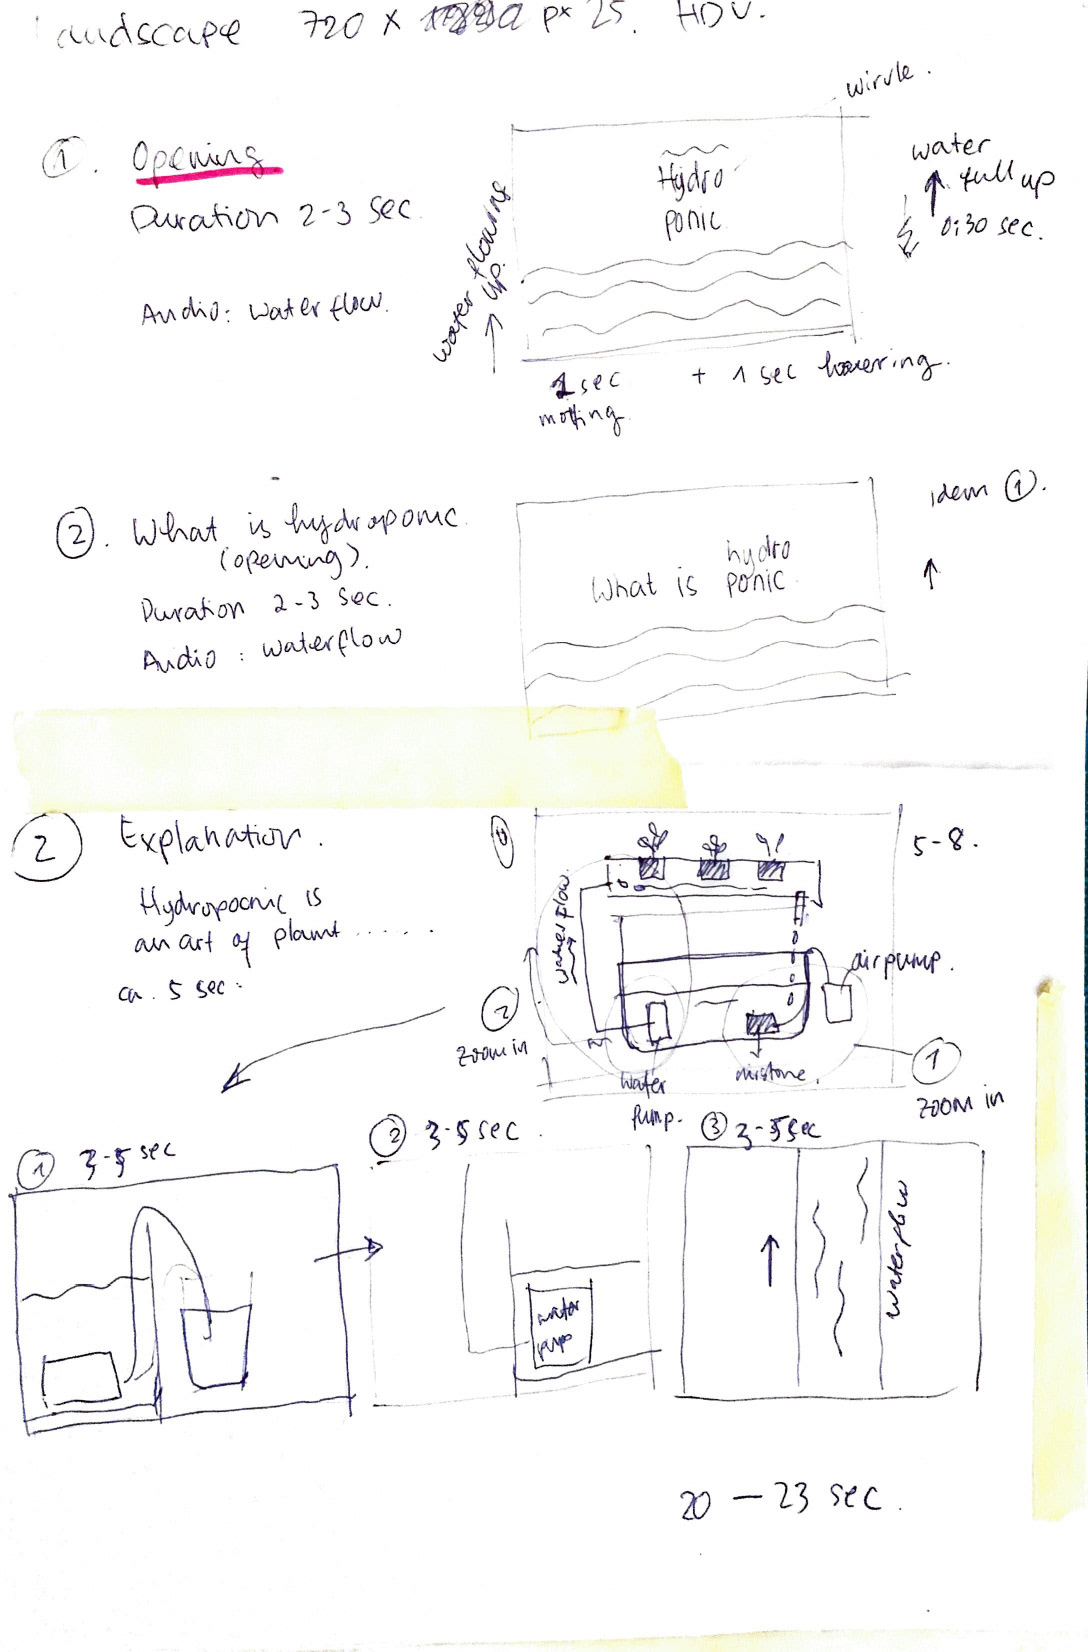 landscape 720 x px 25. HDV.
① . Opening
Duration 2-3 sec.
Audio: water flow.
water flowing
up.
Hydro
ponic
water
full up
0:30 sec.
sec
+ 1 sec hovering.
② . What is hydroponic
(opening).
Duration 2-3 sec.
Audio : waterflow
What is
hydro
ponic
idem ①.
② Explanation.
Hydropocnic is
an art of plamt ......
ca. 5 sec.
5-8.
waterflow.
airpump.
② zoom in
water
pump.
airstone.
①
zoom in
① 3-5 sec
② 3-5 sec.
③ 3-5 sec
water
pupo
waterflow
20 - 23 sec.